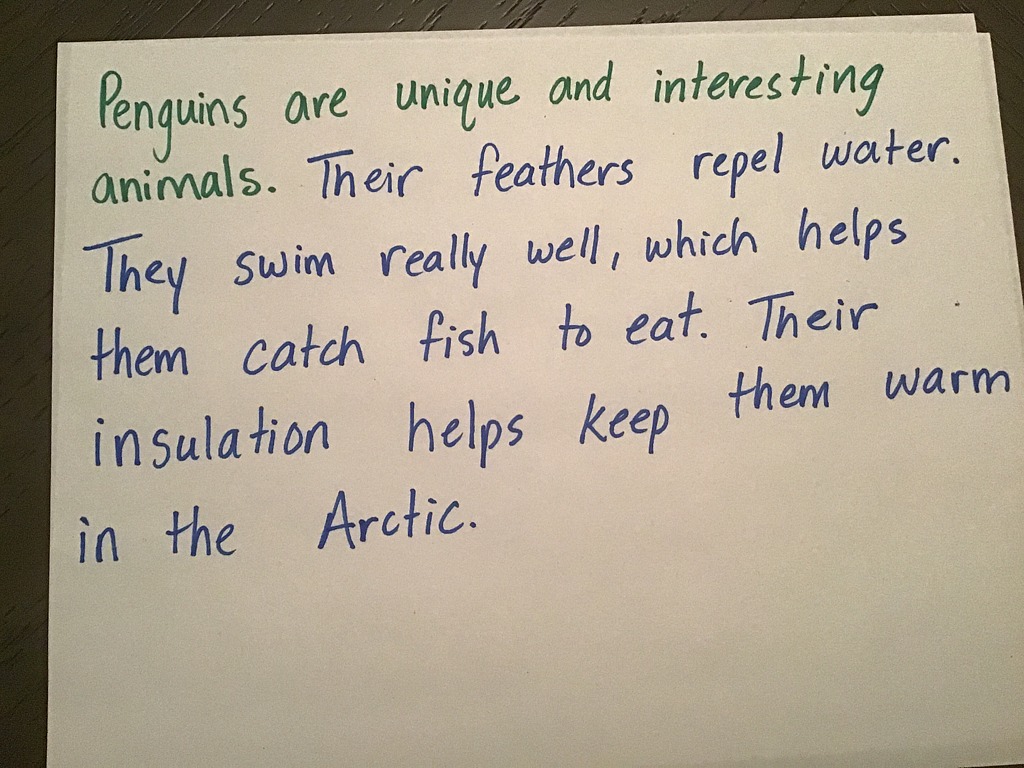 Penguins are unique and interesting
animals. Their feathers repel water.
They swim really well, which helps
them catch fish to eat. Their
insulation helps keep them warm
in the Arctic.